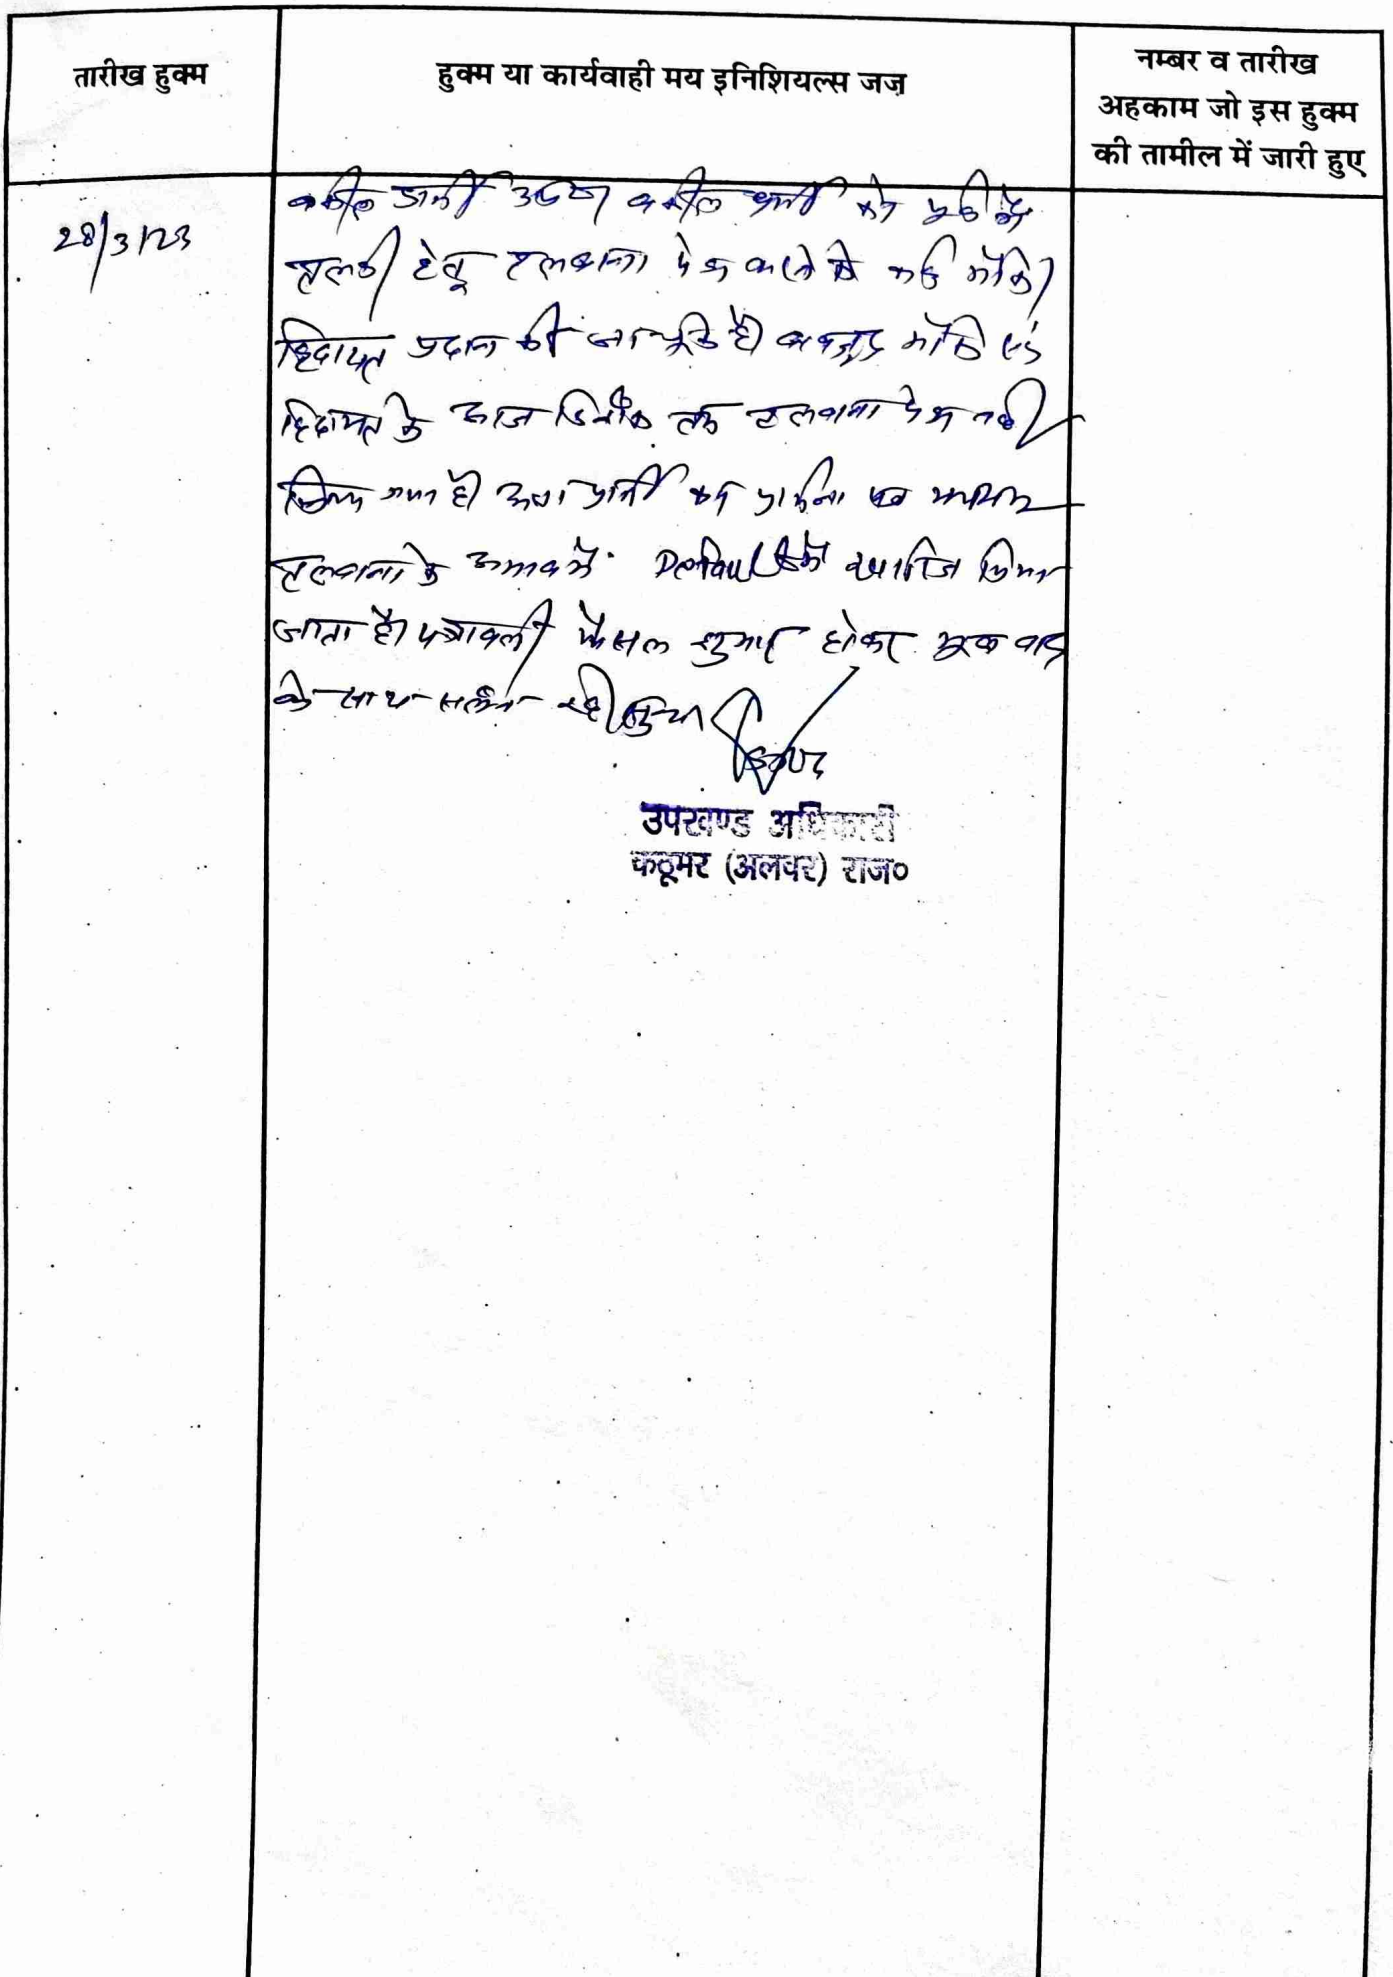 तारीख हुक्म
हुक्म या कार्यवाही मय इनिशियल्स जज़
नम्बर व तारीख
अहकाम जो इस हुक्म
की तामील में जारी हुए
28/3/23
वकील प्रार्थी उप० वकील प्रार्थी को
तलबी हेतु तलवाना पेश करने के कई मौके
हिदायत प्रदान की जा चुकी है। बावजूद मौके एवं
हिदायत के आज दिनांक तक तलवाना पेश नही
किया गया है। अतः प्रार्थी का प्रार्थना पत्र
तलवाना के अभाव में Default में खारिज किया
जाता है। पत्रावली फैसल शुमार होकर मूल वाद
के साथ संलग्न रहे।
उपखण्ड अधिकारी
कठूमर (अलवर) राज०